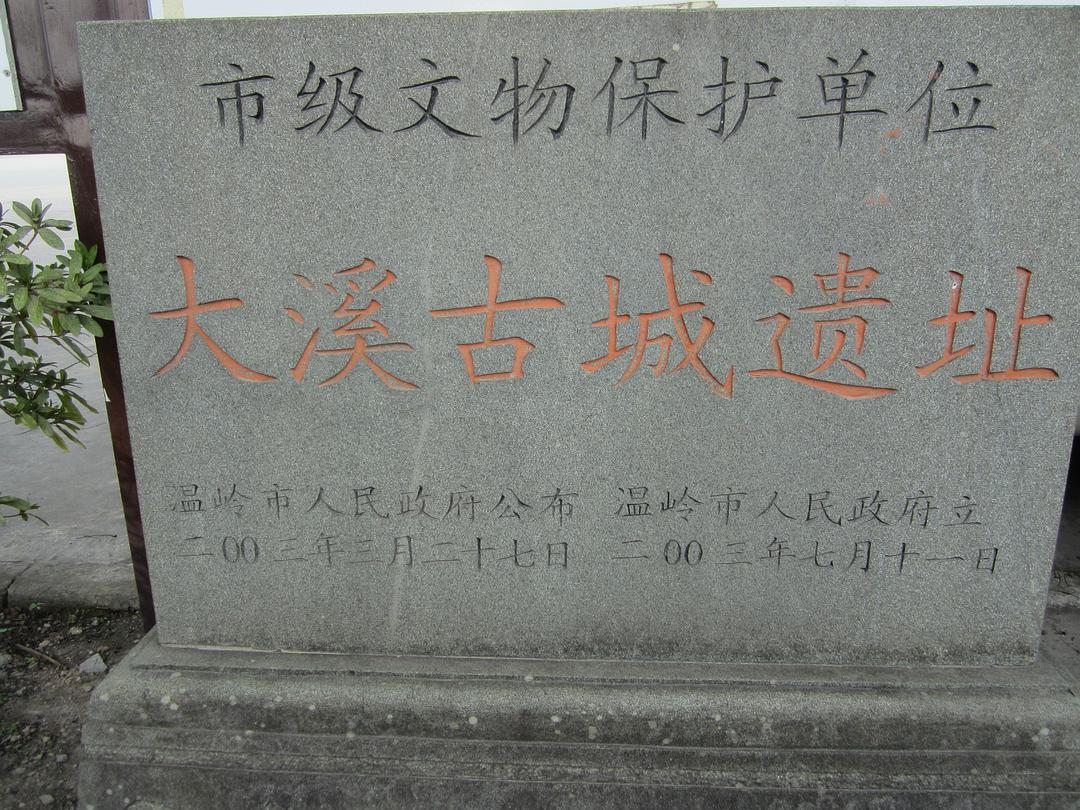 市级文物保护单位
大溪古城遗址
温岭市人民政府公布 温岭市人民政府立
二00三年三月二十七日 二00三年七月十一日